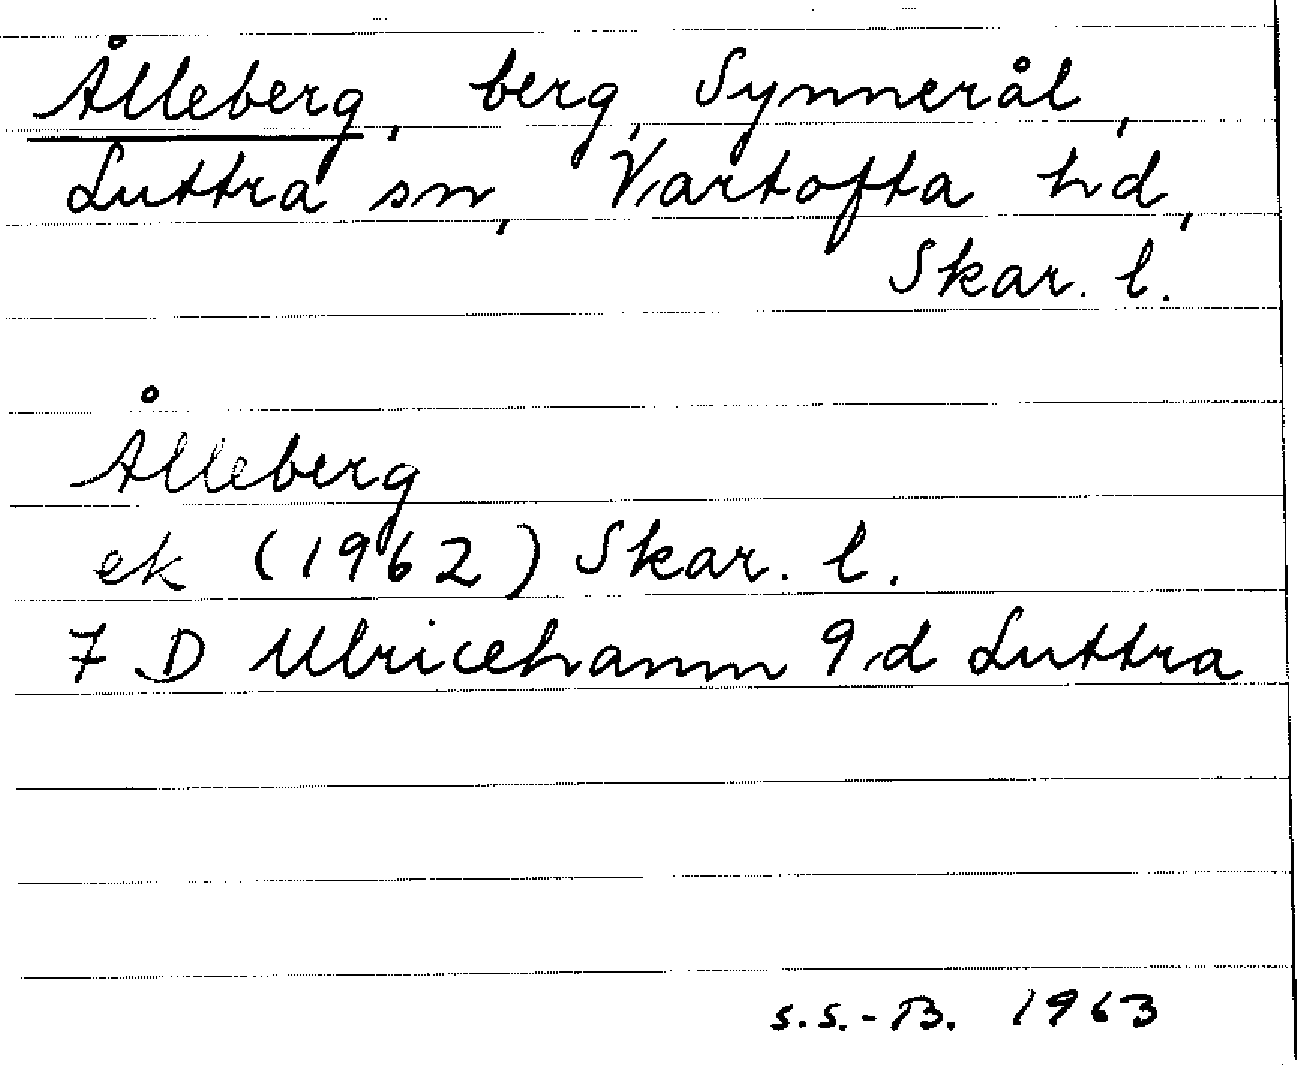 Ålleberg, berg, Synnerål,
Luttra sn, Vartofta hd,
Skar. l.
Ålleberg
ek (1962) Skar. l.
7 D Ulricehamn 9 d Luttra
S.S.-B. 1963